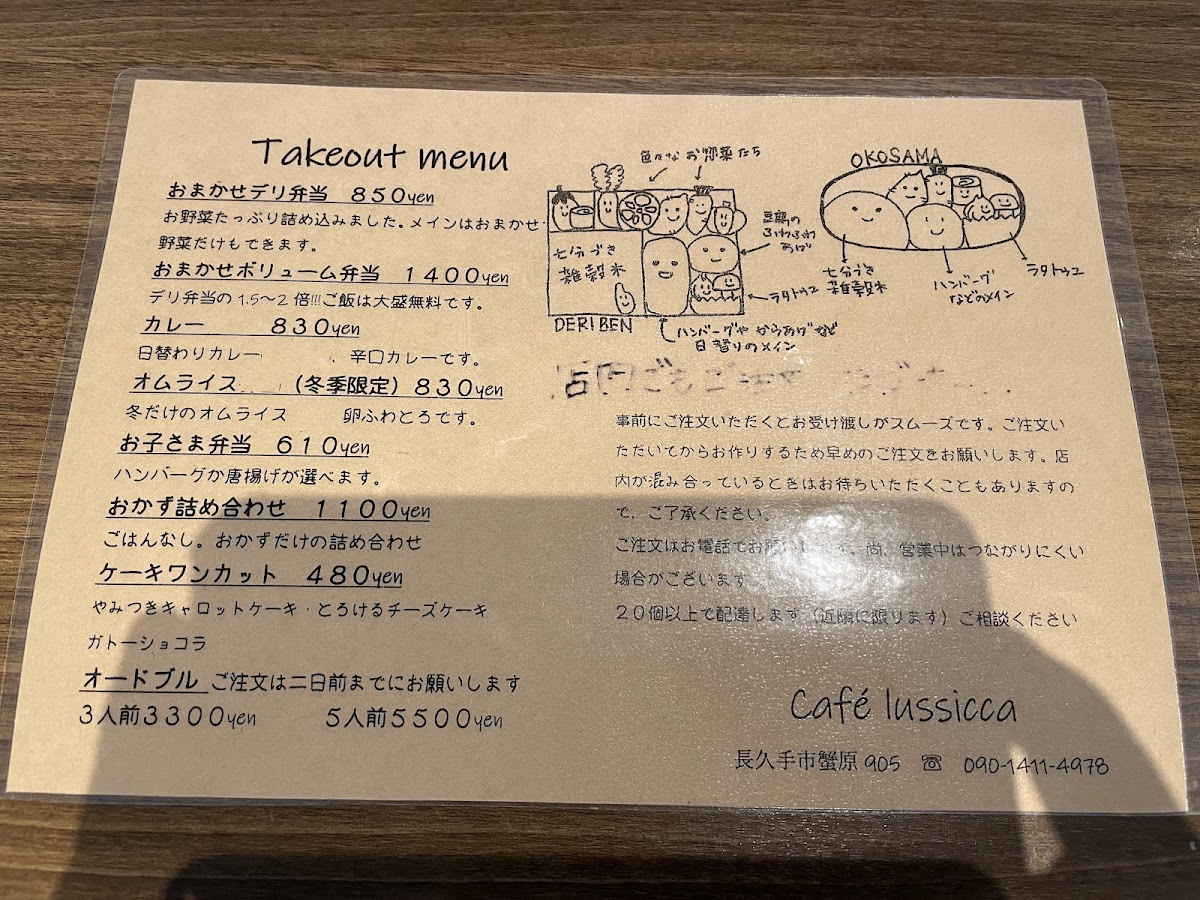 Takeout menu
おまかせデリ弁当　８５０yen
お野菜たっぷり詰め込みました。メインはおまかせ・
野菜だけもできます。
おまかせボリューム弁当　１４００yen
デリ弁当の 1.5～2 倍!!!ご飯は大盛無料です。
カレー　８３０yen
日替わりカレー　、辛口カレーです。
オムライス　（冬季限定）８３０yen
冬だけのオムライス　卵ふわとろです。
お子さま弁当　６１０yen
ハンバーグか唐揚げが選べます。
おかず詰め合わせ　１１００yen
ごはんなし。おかずだけの詰め合わせ
ケーキワンカット　４８０yen
やみつきキャロットケーキ・とろけるチーズケーキ
ガトーショコラ
オードブル　ご注文は二日前までにお願いします
３人前３３００yen　５人前５５００yen
色々な お惣菜たち
七分づき
雑穀米
豆腐の
ふわふわ
あげ
ラタトゥユ
DERIBEN
ハンバーグや からあげなど
日替りのメイン
OKOSAMA
七分づき
雑穀米
ハンバーグ
などのメイン
ラタトゥユ
事前にご注文いただくとお受け渡しがスムーズです。ご注文い
ただいてからお作りするため早めのご注文をお願いします。店
内が混み合っているときはお待ちいただくこともありますの
で、ご了承ください。
ご注文はお電話でお願いします。尚、営業中はつながりにくい
場合がございます
２０個以上で配達します（近隣に限ります）ご相談ください
Café lussicca
長久手市蟹原 905　☏　090-1411-4978